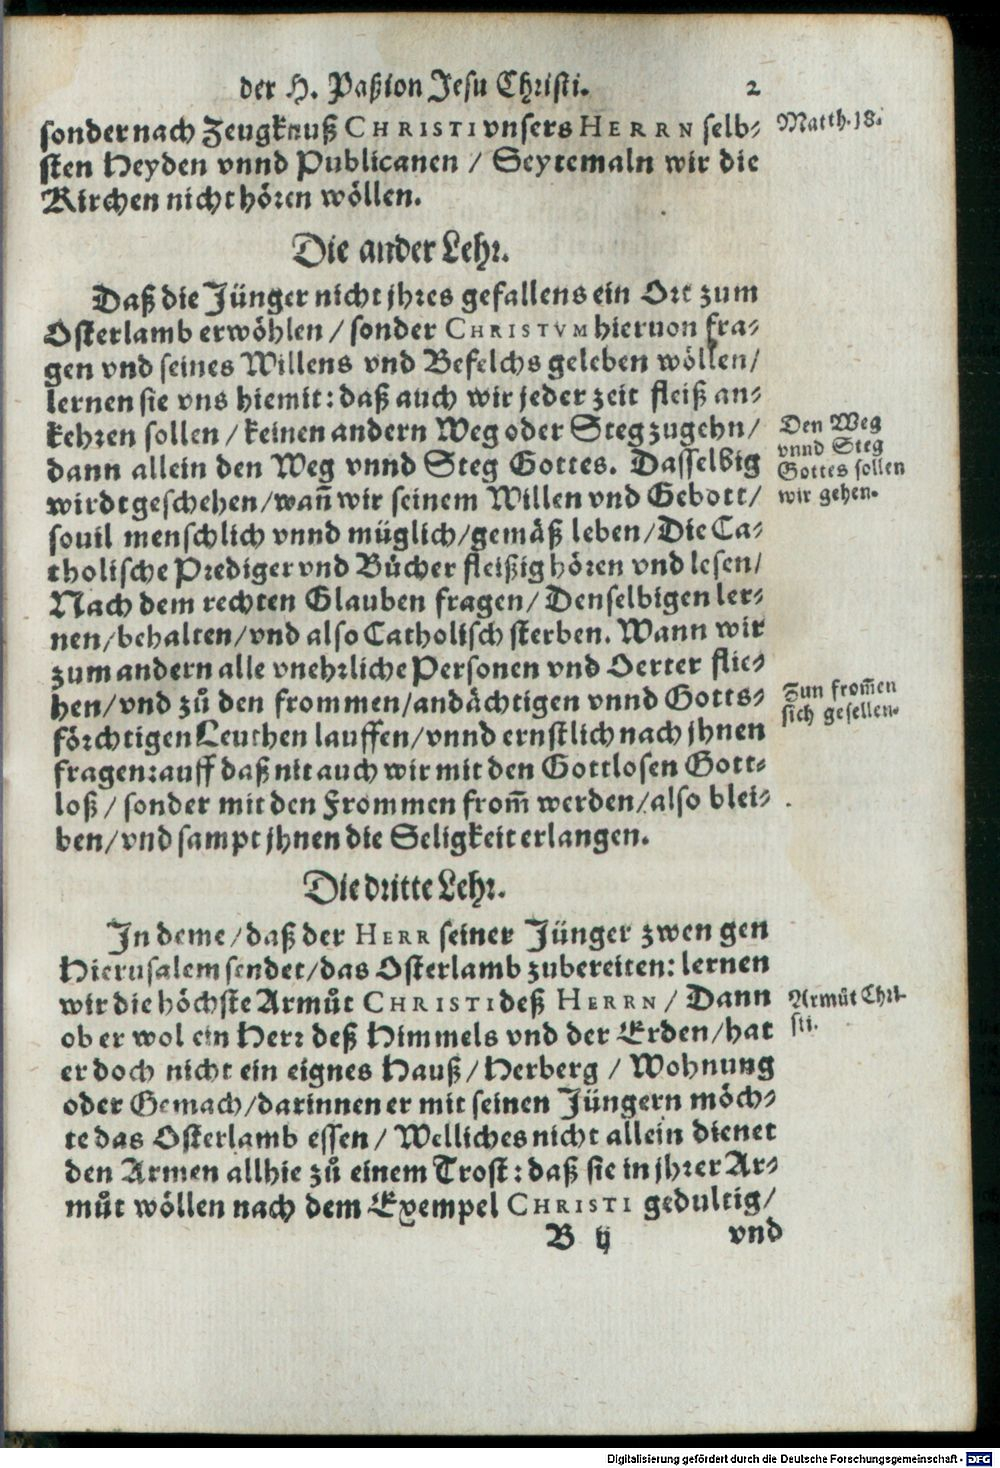 der H. Paßion Jesu Christi. 2
sonder nach Zeugknuß CHRISTI vnsers HERRN selb-
sten Heyden vnnd Publicanen / Seytemaln wir die
Kirchen nicht hören wöllen.
Matth. 18.
Die ander Lehr.
Daß die Jünger nicht jhres gefallens ein Ort zum
Osterlamb erwöhlen / sonder CHRISTVM hieruon fra-
gen vnd seines Willens vnd Befelchs geleben wöllen /
lernen sie vns hiemit: daß auch wir jeder zeit fleiß an-
kehren sollen / keinen andern Weg oder Steg zugehn /
dann allein den Weg vnnd Steg Gottes. Dasselbig
wirdt geschehen / wañ wir seinem Willen vnd Gebott /
souil menschlich vnnd müglich / gemäß leben / Die Ca-
tholische Prediger vnd Bücher fleißig hören vnd lesen /
Nach dem rechten Glauben fragen / Denselbigen ler-
nen / behalten / vnd also Catholisch sterben. Wann wir
zum andern alle vnehrliche Personen vnd Oerter flie-
hen / vnd zů den frommen / andächtigen vnnd Gotts-
förchtigen Leuthen lauffen / vnnd ernstlich nach jhnen
fragen: auff daß nit auch wir mit den Gottlosen Gott-
loß / sonder mit den Frommen from̃ werden / also blei-
ben / vnd sampt jhnen die Seligkeit erlangen.
Den Weg
vnnd Steg
Gottes sollen
wir gehen.
Zun from̃en
sich gesellen.
Die dritte Lehr.
In deme / daß der HERR seiner Jünger zwen gen
Hierusalem sendet / das Osterlamb zubereiten: lernen
wir die höchste Armůt CHRISTI deß HERRN / Dann
ob er wol ein Herr deß Himmels vnd der Erden / hat
er doch nicht ein eignes Hauß / Herberg / Wohnung
oder Gemach / darinnen er mit seinen Jüngern möch-
te das Osterlamb essen / Welliches nicht allein dienet
den Armen allhie zů einem Trost: daß sie in jhrer Ar-
můt wöllen nach dem Exempel CHRISTI gedultig /
Armůt Chri-
sti.
B ij vnd
Digitalisierung gefördert durch die Deutsche Forschungsgemeinschaft - DFG